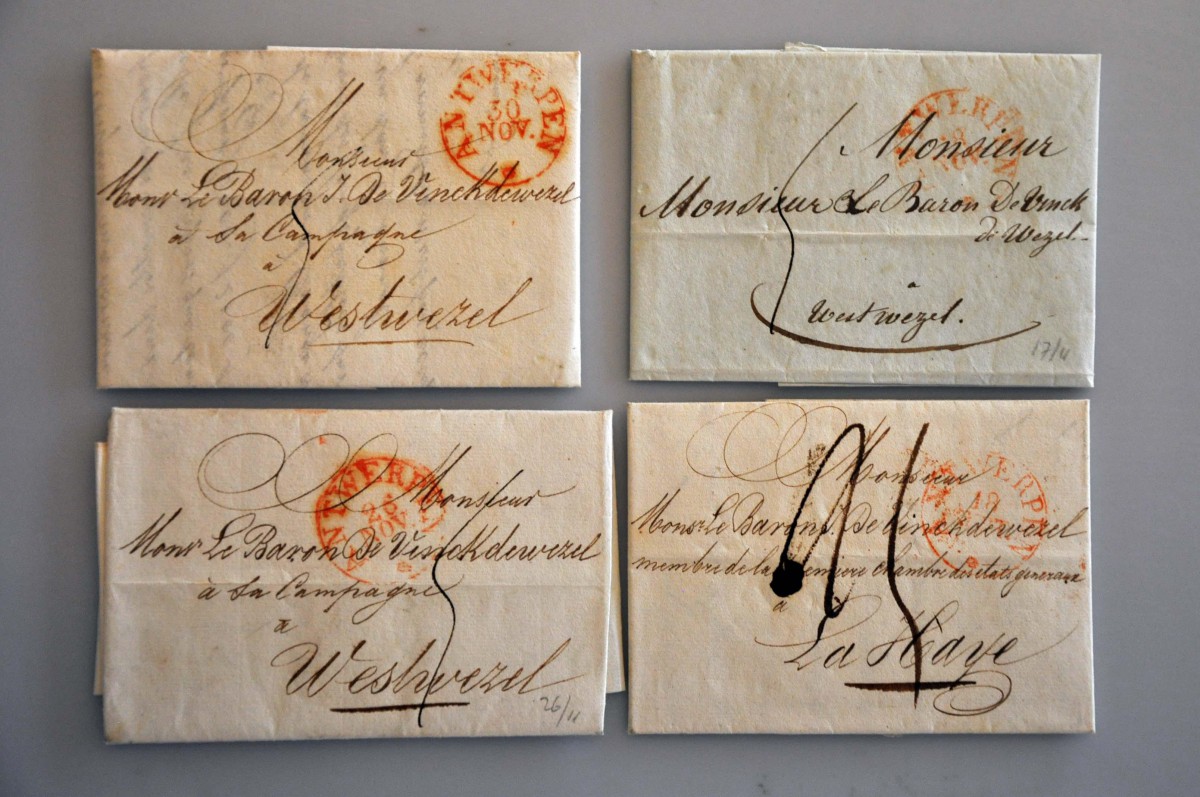 ANTWERPEN
30
NOV.
Monsieur
Monsr Le Baron J. De Vinckdewezel
à Sa Campagne
à
Westwezel
Monsieur
Monsieur Le Baron De Vinck
de Wezel.
à
Westwezel.
17/11
ANTWERPEN
26
NOV.
Monsieur
Monsr Le Baron De Vinckdewezel
à Sa Campagne
à
Westwezel
26/11
Monsieur
Monsr Le Baron J. De Vinckdewezel
membre de la premiere chambre des etats generaux
à
La Haye